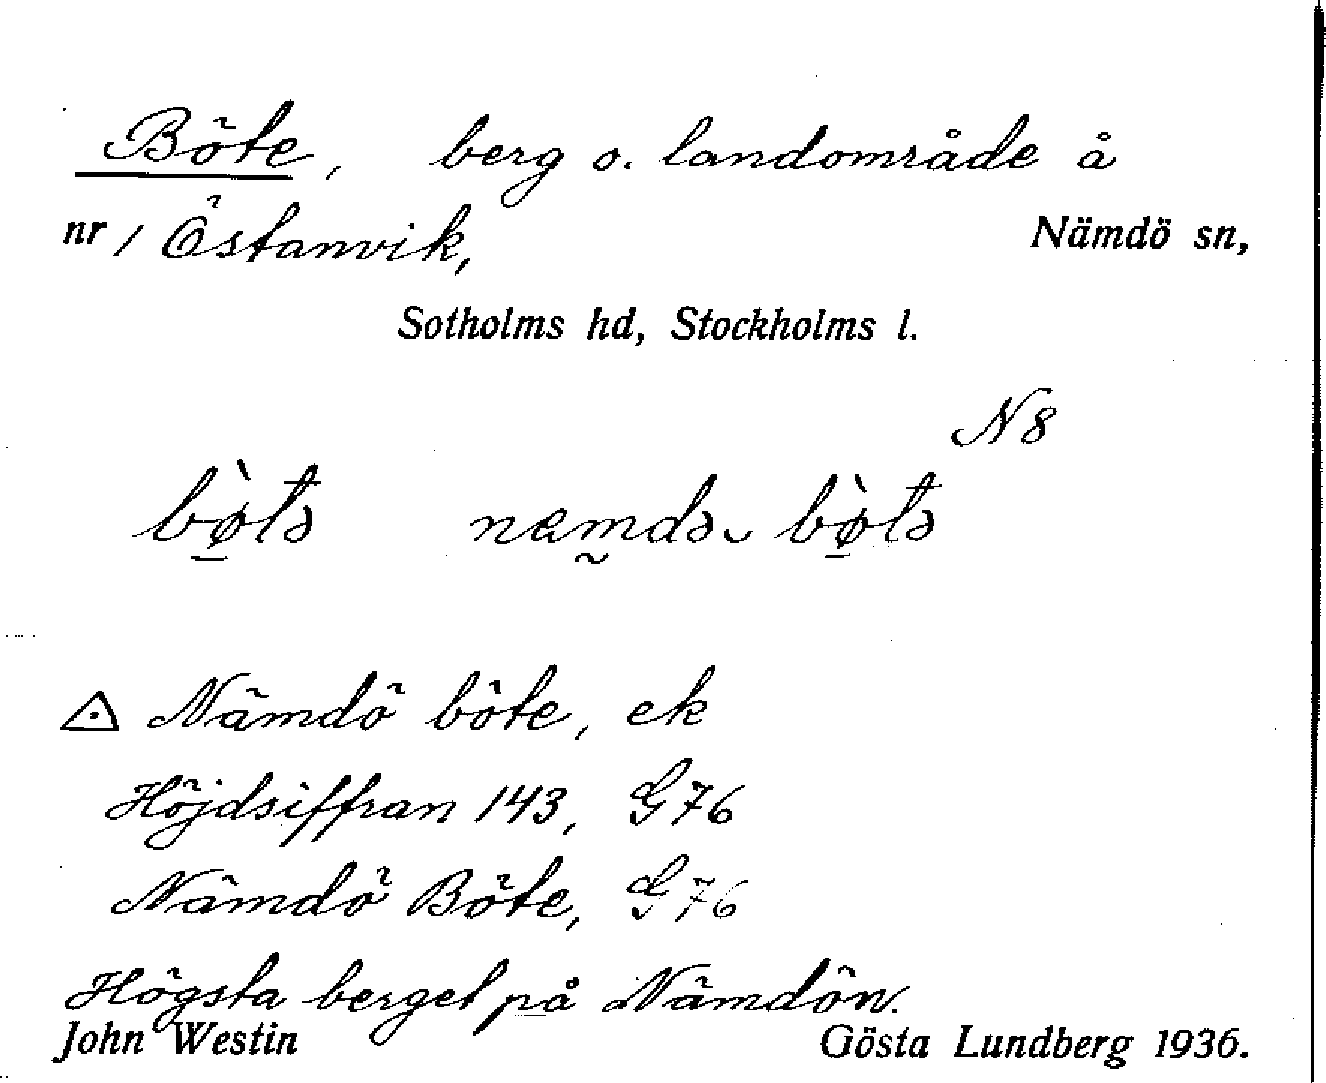 Böte, berg o. landområde å
nr 1 Östanvik, Nämdö sn,
Sotholms hd, Stockholms l.
N8
bø̀tə næmdə bø̀tə
Nämdö böte, ek
Höjdsiffran 143, G76
Nämdö Böte, G76
Högsta berget på Nämdön.
John Westin Gösta Lundberg 1936.